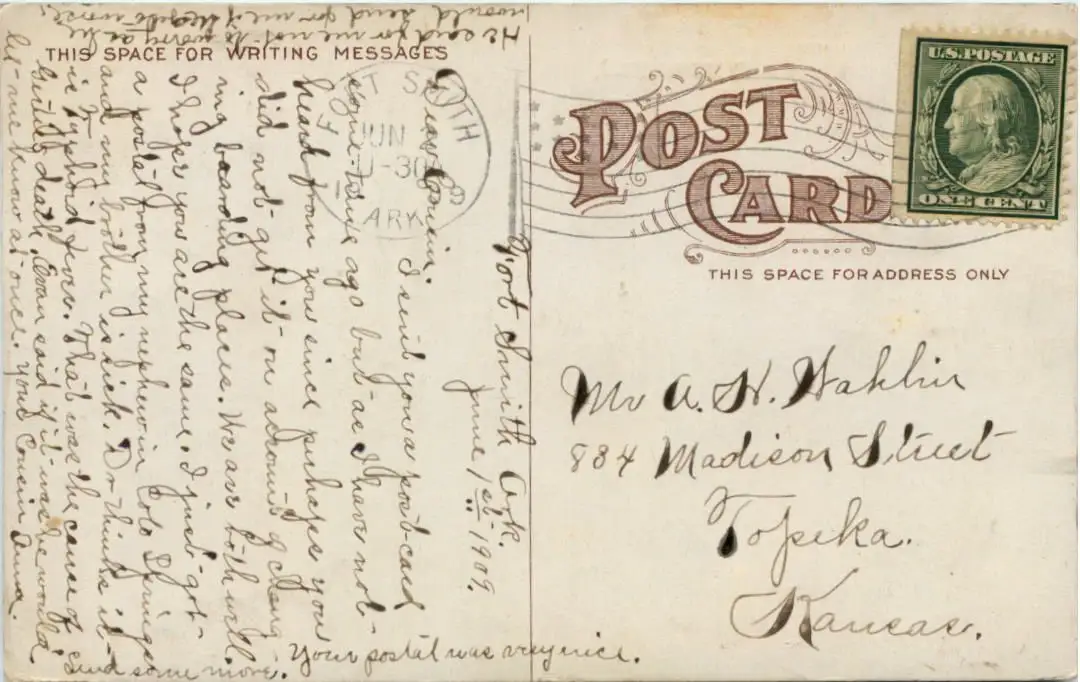 THIS SPACE FOR WRITING MESSAGES
Fort Smith Ark.
June 1st 1909.
Dear Cousin
I sent you a post-card
some time ago but as I have not
heard from you since perhaps you
did not get it on account of chang-
ing boarding places. We are both well.
I hope you are the same. I just got
a postal from my nephew in Colo Springs
and my brother is sick. Dr thinks it
is Typhoid Fever. That was the cause of
death. said if it was he would
let me know at once. Your Cousin
He said for me not to worry as he
would send for me if
Your postal was very nice.
Send some more.
FT SMITH
JUN
-30
ARK
POST
CARD
THIS SPACE FOR ADDRESS ONLY
U.S. POSTAGE
ONE CENT
Mr A. H. Wahlin
884 Madison Street
Topeka.
Kansas.